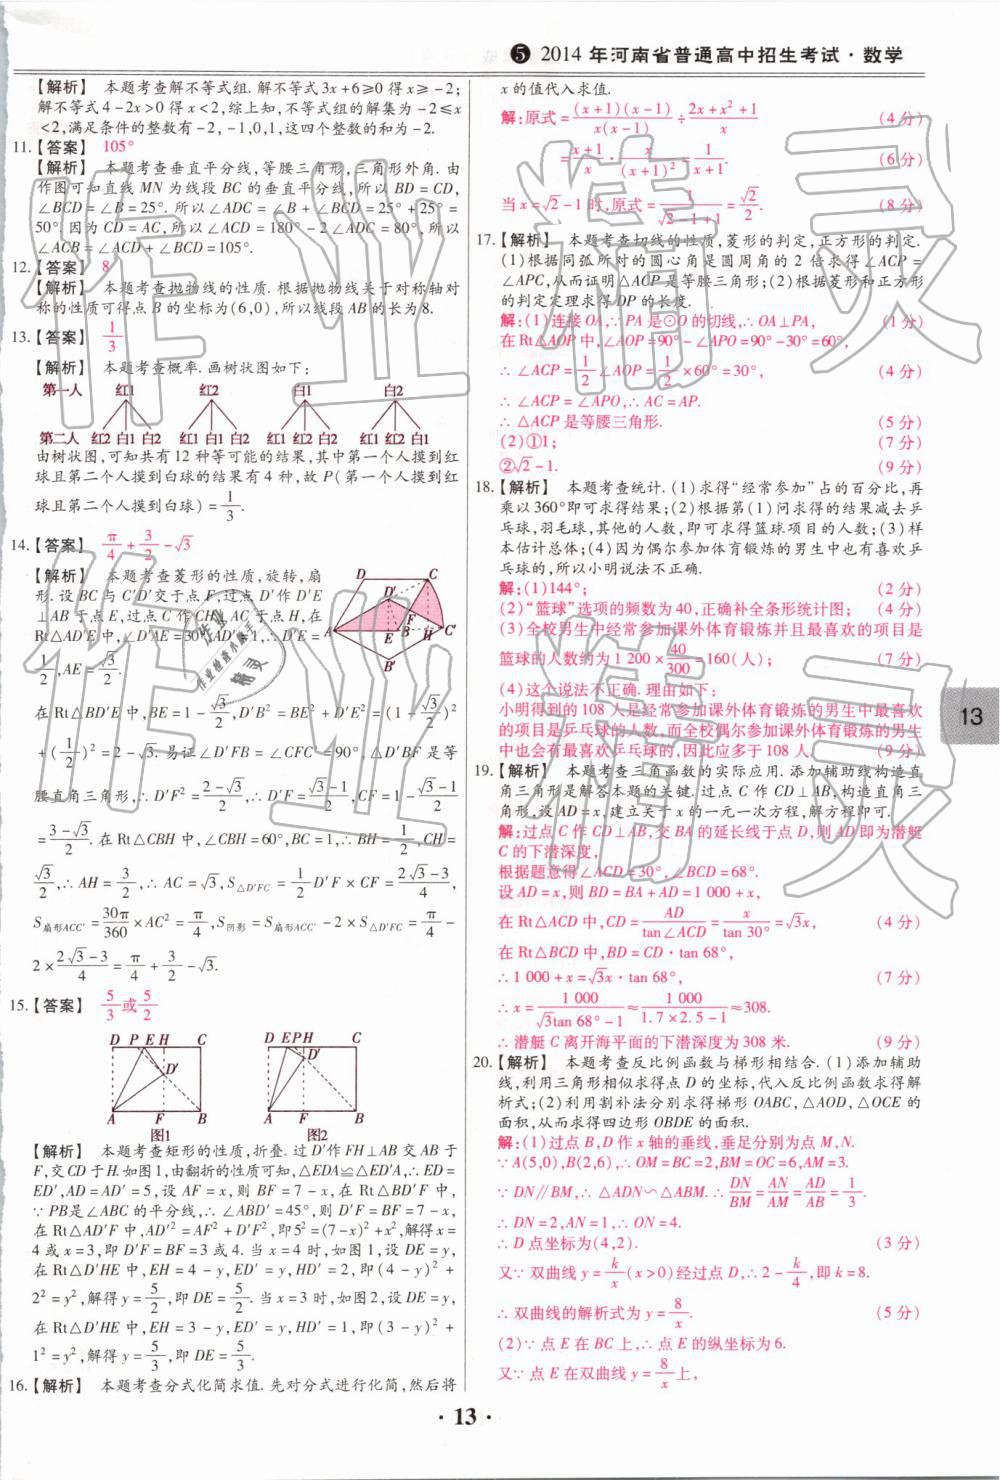 ❺ 2014 年河南省普通高中招生考试·数学
【解析】 本题考查解不等式组. 解不等式3x+6≥0得x≥-2;
解不等式4-2x>0得x<2,综上知,不等式组的解集为-2≤x
<2,满足条件的整数有-2,-1,0,1,这四个整数的和为-2.
11.【答案】 105°
【解析】 本题考查垂直平分线,等腰三角形,三角形外角. 由
作图可知直线 MN 为线段 BC 的垂直平分线,所以 BD=CD,
∠BCD=∠B=25°. 所以∠ADC=∠B+∠BCD=25°+25°=
50°. 因为 CD=AC,所以∠ACD=180°-2∠ADC=80°,所以
∠ACB=∠ACD+∠BCD=105°.
12.【答案】 8
【解析】 本题考查抛物线的性质. 根据抛物线关于对称轴对
称的性质可得点 B 的坐标为(6,0),所以线段 AB 的长为 8.
13.【答案】 1/3
【解析】 本题考查概率. 画树状图如下:
第一人 红1 红2 白1 白2
第二人 红2 白1 白2 红1 白1 白2 红1 红2 白2 红1 红2 白1
由树状图,可知共有 12 种等可能的结果,其中第一个人摸到红
球且第二个人摸到白球的结果有 4 种,故 P(第一个人摸到红
球且第二个人摸到白球)=1/3.
14.【答案】 π/4+3/2-√3
【解析】 本题考查菱形的性质,旋转,扇
形. 设 BC 与 C′D′交于点 F,过点 D′作 D′E
⊥AB 于点 E,过点 C 作 CH⊥AC′于点 H,在
Rt△AD′E 中,∠D′AE=30°,AD′=1,∴D′E=
1/2,AE=√3/2.
D C D′ F A E B H C′ B′
在 Rt△BD′E 中,BE=1-√3/2,D′B²=BE²+D′E²=(1-√3/2)²
+(1/2)²=2-√3. 易证∠D′FB=∠CFC′=90°,△D′BF 是等
腰直角三角形,∴D′F²=(2-√3)/2,∴D′F=(√3-1)/2,CF=1-(√3-1)/2
=(3-√3)/2. 在 Rt△CBH 中,∠CBH=60°,BC=1,∴BH=1/2,CH=
√3/2,∴AH=3/2,∴AC=√3,S△D′FC=1/2 D′F×CF=(2√3-3)/4,
S扇形ACC′=30π/360×AC²=π/4,S阴影=S扇形ACC′-2×S△D′FC=π/4-
2×(2√3-3)/4=π/4+3/2-√3.
15.【答案】 5/3或5/2
D P E H C D′ A F B
图1
D E P H C D′ A F B
图2
【解析】 本题考查矩形的性质,折叠. 过 D′作 FH⊥AB 交 AB 于
F,交 CD 于 H. 如图 1,由翻折的性质可知,△EDA≌△ED′A,∴ED=
ED′,AD=AD′=5,设 AF=x,则 BF=7-x,在 Rt△BD′F 中,
∵PB是∠ABC 的平分线,∴∠ABD′=45°,则 D′F=BF=7-x,
在 Rt△AD′F 中,AD′²=AF²+D′F²,即5²=(7-x)²+x²,解得x=
4或x=3,即 D′F=BF=3或4. 当 x=4 时,如图 1,设 DE=y,
在 Rt△D′HE 中,EH=4-y,ED′=y,HD′=2,即(4-y)²+
2²=y²,解得y=5/2,即 DE=5/2. 当 x=3 时,如图2,设 DE=y,
在 Rt△D′HE 中,EH=3-y,ED′=y,HD′=1,即(3-y)²+
1²=y²,解得y=5/3,即 DE=5/3.
16.【解析】 本题考查分式化简求值. 先对分式进行化简,然后将
x 的值代入求值.
解:原式=(x+1)(x-1)/x(x-1)÷(2x+x²+1)/x (4 分)
=(x+1)/x·x/(x+1)²=1/(x+1). (6 分)
当 x=√2-1 时,原式=1/(√2-1+1)=√2/2. (8 分)
17.【解析】 本题考查切线的性质,菱形的判定,正方形的判定.
(1)根据同弧所对的圆心角是圆周角的 2 倍求得∠ACP=
∠APC,从而证明△ACP是等腰三角形;(2)根据菱形和正方形
的判定定理求得 DP 的长度.
解:(1)连接 OA,∵PA 是⊙O 的切线,∴OA⊥PA, (1 分)
在 Rt△AOP 中,∠AOP=90°-∠APO=90°-30°=60°,
∴∠ACP=1/2∠AOP=1/2×60°=30°, (4 分)
∴∠ACP=∠APO,∴AC=AP.
∴△ACP 是等腰三角形. (5 分)
(2)①1; (7 分)
②√2-1. (9 分)
18.【解析】 本题考查统计. (1)求得“经常参加”占的百分比,再
乘以360°即可求得结果;(2)根据第(1)问求得的结果减去乒
乓球,羽毛球,其他的人数,即可求得篮球项目的人数;(3)样
本估计总体;(4)因为偶尔参加体育锻炼的男生中也有喜欢乒
乓球的,所以小明说法不正确.
解:(1)144°; (2 分)
(2)“篮球”选项的频数为 40,正确补全条形统计图; (4 分)
(3)全校男生中经常参加课外体育锻炼并且最喜欢的项目是
篮球的人数约为 1 200×40/300=160(人); (7 分)
(4)这个说法不正确. 理由如下:
小明得到的 108 人是经常参加课外体育锻炼的男生中最喜欢
的项目是乒乓球的人数,而全校偶尔参加课外体育锻炼的男生
中也会有最喜欢乒乓球的,因此应多于 108 人. (9 分)
19.【解析】 本题考查三角函数的实际应用. 添加辅助线构造直
角三角形是解答本题的关键. 过点 C 作 CD⊥AB,构造直角三
角形,设 AD=x,建立关于 x 的一元一次方程,解方程即可.
解:过点 C 作 CD⊥AB,交 BA 的延长线于点 D,则 AD 即为潜艇
C 的下潜深度,
根据题意得∠ACD=30°,∠BCD=68°.
设 AD=x,则 BD=BA+AD=1 000+x,
在 Rt△ACD 中,CD=AD/tan∠ACD=x/tan 30°=√3x, (4 分)
在 Rt△BCD 中,BD=CD·tan 68°,
∴1 000+x=√3x·tan 68°, (7 分)
∴x=1 000/(√3tan 68°-1)≈1 000/(1.7×2.5-1)≈308.
∴潜艇 C 离开海平面的下潜深度为 308 米. (9 分)
20.【解析】 本题考查反比例函数与梯形相结合. (1)添加辅助
线,利用三角形相似求得点 D 的坐标,代入反比例函数求得解
析式;(2)利用割补法分别求得梯形 OABC,△AOD,△OCE 的
面积,从而求得四边形 OBDE 的面积.
解:(1)过点 B,D 作 x 轴的垂线,垂足分别为点 M,N.
∵A(5,0),B(2,6),∴OM=BC=2,BM=OC=6,AM=3.
∵DN∥BM,∴△ADN∽△ABM. ∴DN/BM=AN/AM=AD/AB=1/3.
∴DN=2,AN=1,∴ON=4.
∴D 点坐标为(4,2). (3 分)
又∵双曲线 y=k/x(x>0)经过点 D,∴2=k/4,即 k=8.
∴双曲线的解析式为 y=8/x. (5 分)
(2)∵点 E 在 BC 上,∴点 E 的纵坐标为6.
又∵点 E 在双曲线 y=8/x上,
13
·13·
作业精灵
作业精灵
作业
作业检查小助手
精灵